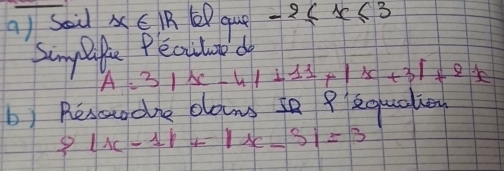 a) Soit x ∈ IR tel que -2 < x < 3
Simplifie l'écriture de
A = 3|x - 4| + 11 + |x + 3| + 2x
b) Résoudre dans IR l'équation
2|x - 1| + |x - 3| = 3